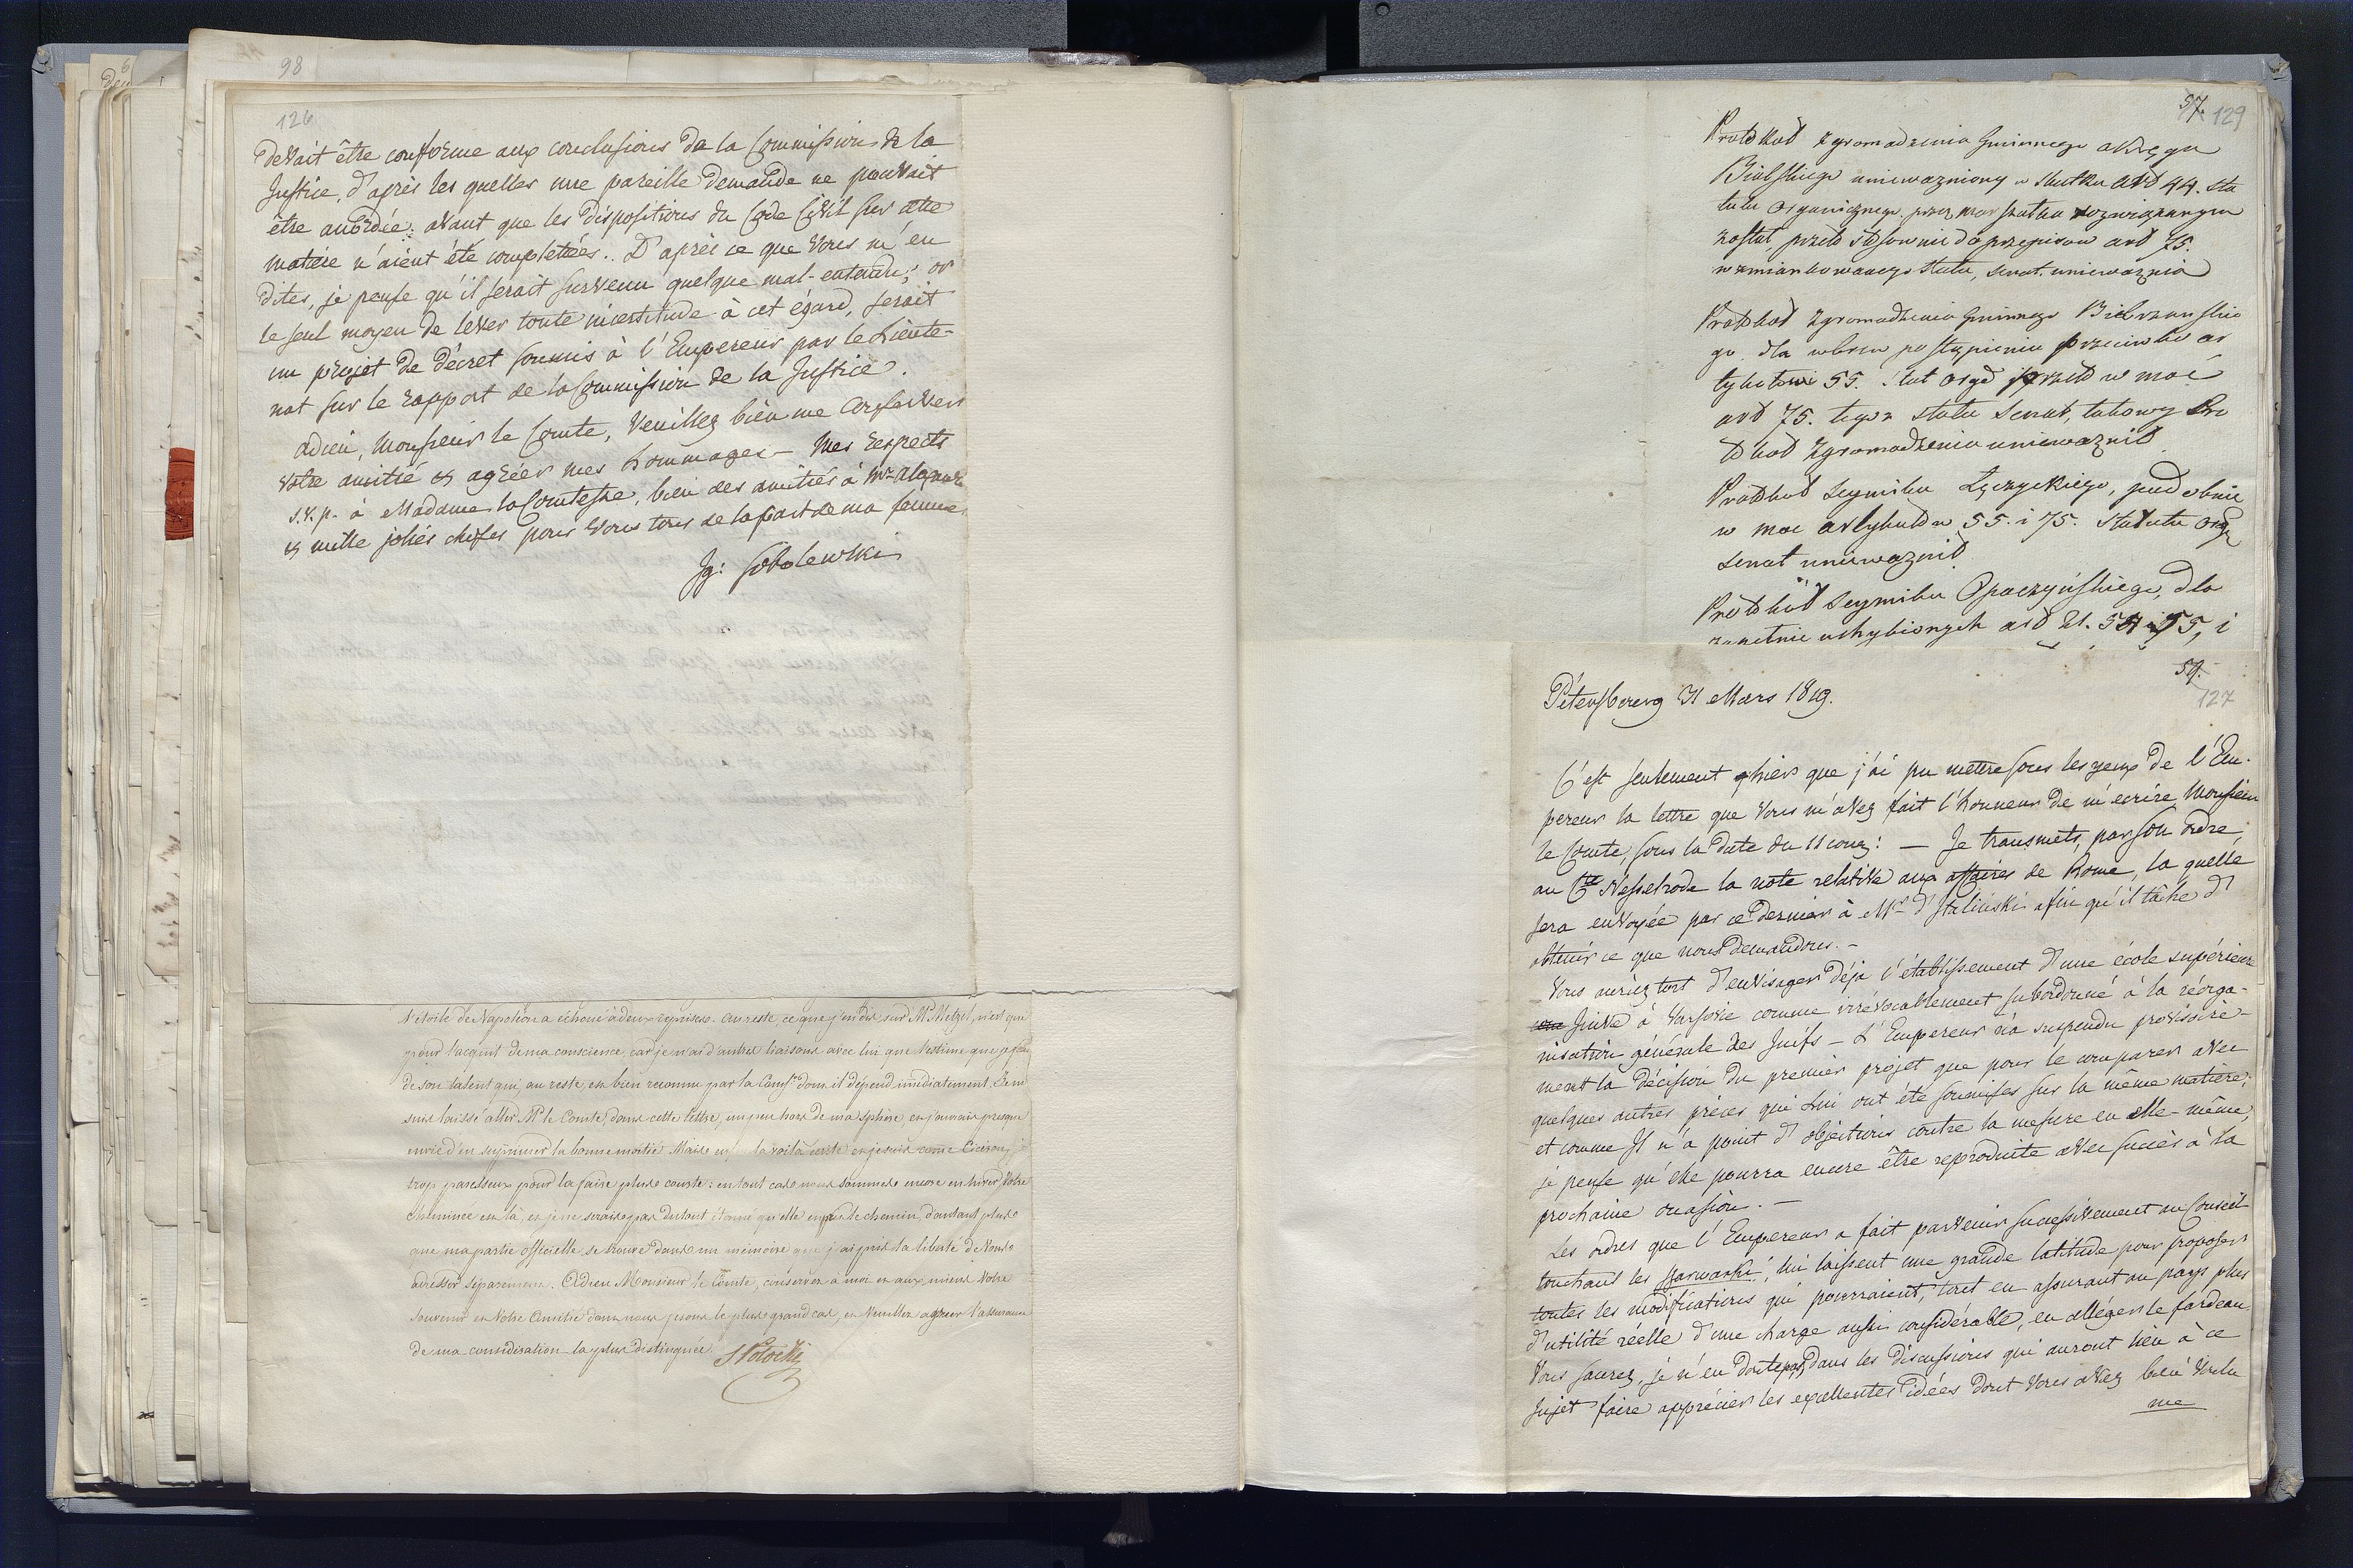 98
126
devait être conforme aux conclusions de la Commission de la
Justice, d'après les quelles une pareille demande ne pouvait
être abordée, avant que les dispositions du Code Civil sur cette
matière n'aient été complétées. D'après ce que Vous m'en
dites, je pense qu'il serait survenu quelque mal-entendu; or
le seul moyen de lever toute incertitude à cet égard, serait
un projet de décret soumis à l'Empereur par le Lieute-
nat sur le rapport de la Commission de la Justice.
adieu, Monsieur le Comte, Veuillez bien me conserver
votre amitié & agréer mes hommages — Mes respects
s.v.p. à Madame la Comtesse, bien des amitiés à Mr
& mille jolies choses pour Vous tous de la part de ma femme
Ig: Sobolewski
l'étoile de Napoléon a échoué à deux reprises. Au reste, ce que j'en dis sur Mr n'est que
pour l'acquit de ma conscience, car je n'ai d'autres liaisons avec lui que l'estime que je fais
de son talent qui, au reste, est bien reconnu par la Comsn dont il dépend imédiatement. Je me
suis laissé aller Mr le Comte, dans cette lettre, un peu hors de ma sphère, et j'aurais presque
envie d'en suprimer la bonne moitié. Mais la voilà écrite et je suis comme Ciceron,
trop paresseux pour la faire plus courte: en tout cas nous sommes encore en hiver, Votre
cheminée est là, et je ne serais pas du tout étonné qu'elle en prit le chemin, d'autant plus
que ma partie officielle se trouve dans un mémoire que j'ai pris la liberté de Vous
adresser séparement. Adieu Monsieur le Comte, conservez à moi et aux miens Votre
souvenir et Votre Amitié dont nous fesons le plus grand cas, et Veuillez agréer l'assurance
de ma considération la plus distinguée. SPotocki
57. 129
Protokuł zgromadzenia Gminnego okręgu
Bialskiego unieważniony w skutku art 44. sta
tutu Organicznego, przez marszałka rozwiązanym
został, przeto stosownie do przepisow art 75.
wzmiankowanego Statu, senat unieważnia
Protokuł zgromadzenia Gminnego
go dla wbrew postąpieniu przeciwko ar
tykułowi 55. stat orgo przeto w moc
art 75. tegoż statu Senat, takowy Pro
tokuł Zgromadzenia unieważnił
Protokuł Seymiku Łęczyckiego, podobnie
w moc artykułow 55. i 75. Statutu org
senat unieważnił
Protokuł Seymiku Opoczyńskiego, dla
zupełnie uchybionych art 21. 54 i 55, i
59.
127
Pétersbourg 31 Mars 1819.
C'est seulement hier que j'ai pu mettre sous les yeux de l'Em-
pereur la lettre que Vous m'avez fait l'honneur de m'écrire Monsieur
le Comte, sous la date du 11 cour: — Je transmets, par Son ordre,
au Cte Nesselrode la note relative aux affaires de Rome, la quelle
sera envoyée par ce dernier à Mr d'Italinski afin qu'il tâche d'
obtenir ce que nous demandons. —
Vous auriez tort d'envisager déjà l'établissement d'une école supérieure
Juive à Varsovie comme irrévocablement subordonné à la réorga-
nisation générale des Juifs — L'Empereur n'a suspendu provisoire-
ment la décision du premier projet que pour le comparer avec
quelques autres pièces qui Lui ont été soumises sur la même matière;
et comme Il n'a point d'objections contre la mesure en elle-même,
je pense qu'elle pourra encore être reproduite avec succès à la
prochaine occasion. —
Les ordres que l'Empereur a fait parvenir successivement au Conseil
touchant les Szarwarki, lui laissent une grande latitude pour proposer
toutes les modifications qui pourraient, tout en assurant au pays plus
d'utilité réelle d'une charge aussi considérable, en alléger le fardeau
Vous saurez, je n'en doute pas, dans les discussions qui auront lieu à ce
sujet faire apprécier les excellentes idées dont Vous avez bien voulu
me